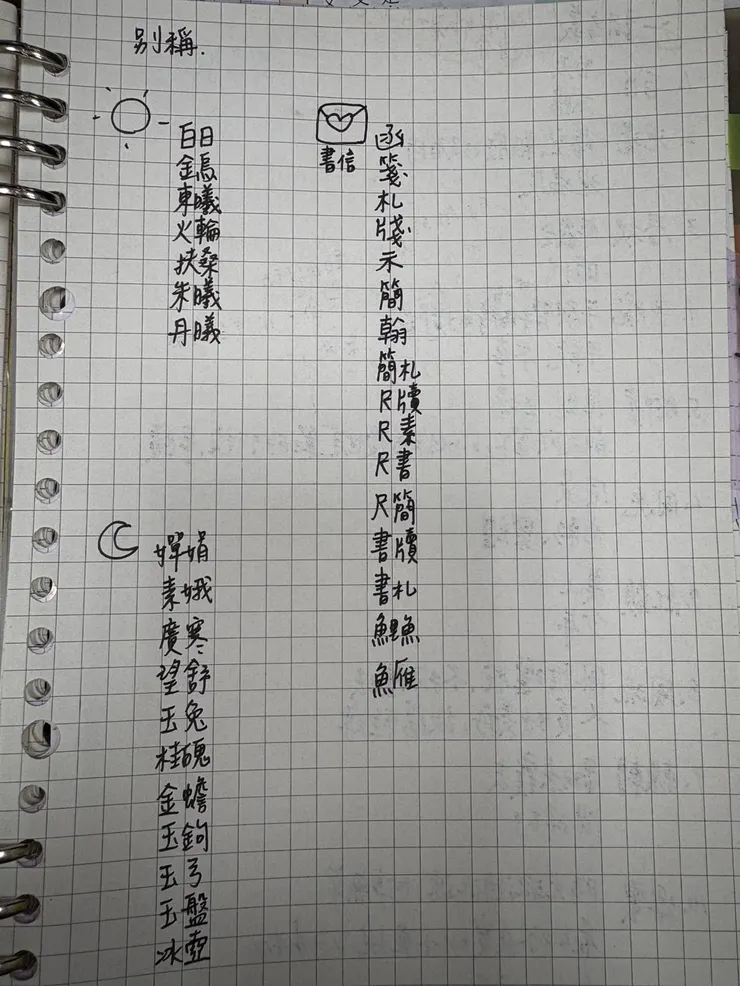 別稱.
白日
金烏
東曦
火輪
扶桑
朱曦
丹曦
嬋娟
素娥
廣寒
望舒
玉兔
桂魄
金蟾
玉鉤
玉弓
玉盤
冰壺
書信
函
箋
札
牋
示
簡
翰
簡札
尺牘
尺素
尺書
尺簡
書牘
書札
魚雁